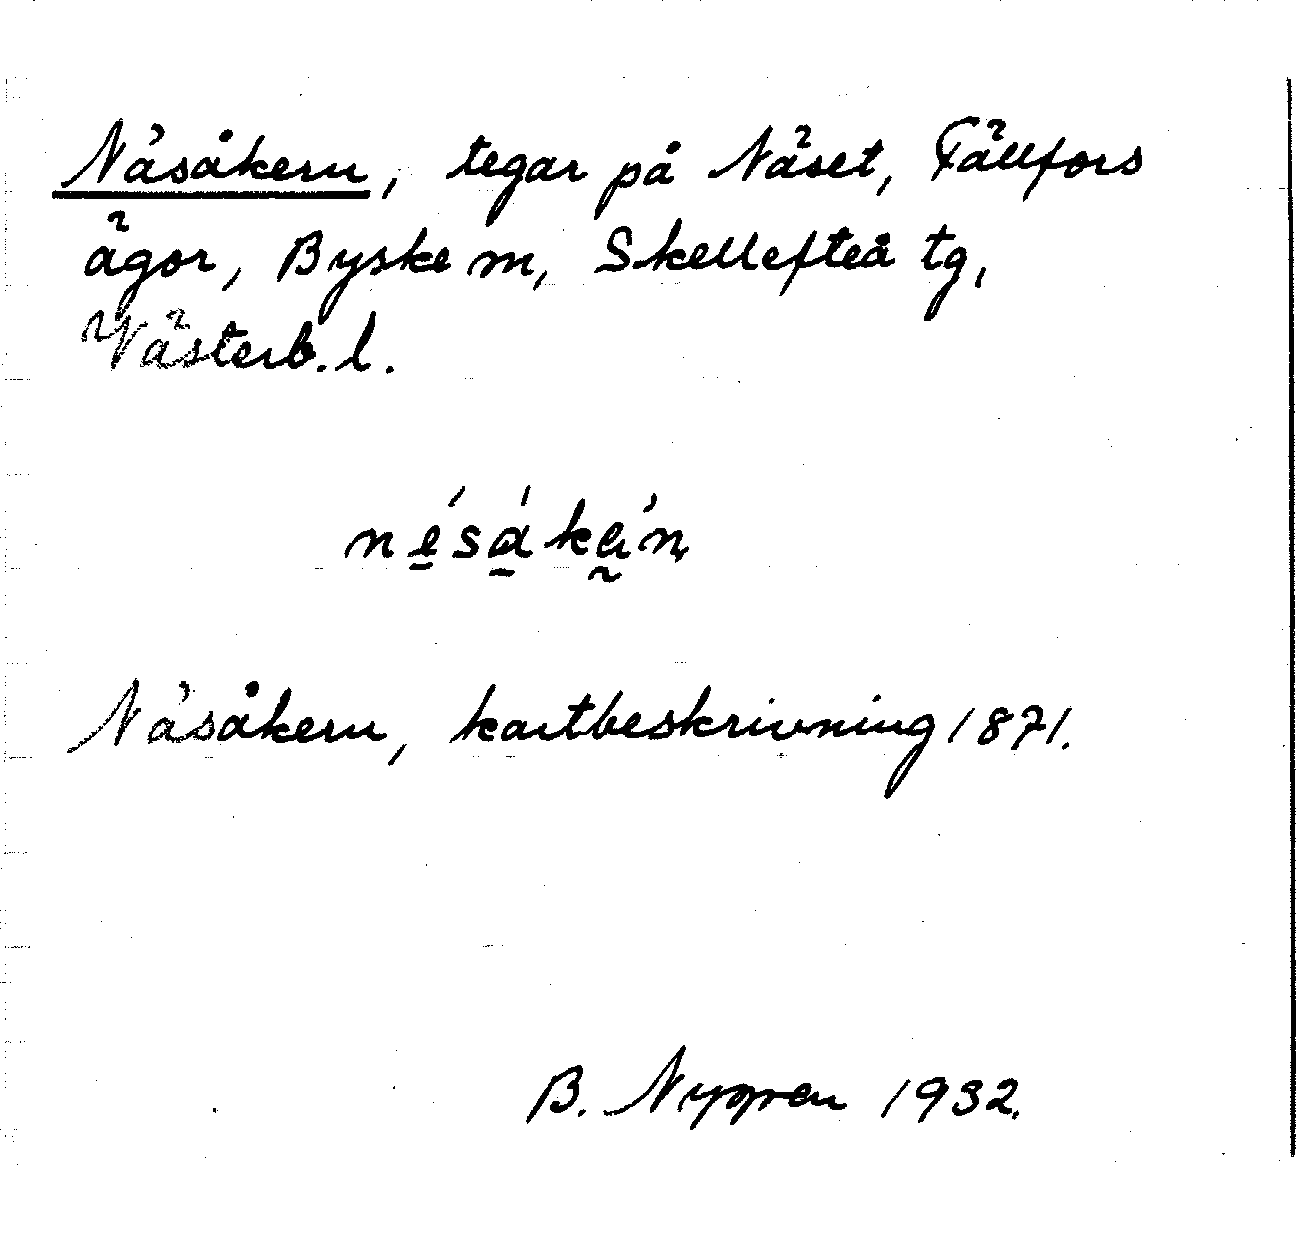 Näsåkern, tegar på Näset, Fällfors
ägor, Byske m, Skellefteå tg,
Västerb. l.
Näsåkern, kartbeskrivning 1871.
B. Nygren 1932.